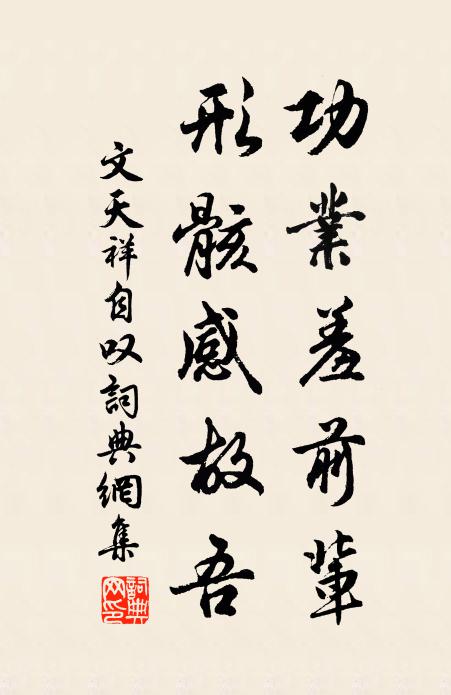 功業羞前輩
形骸感故吾
文天祥自叹詞典網集
詞典
网印